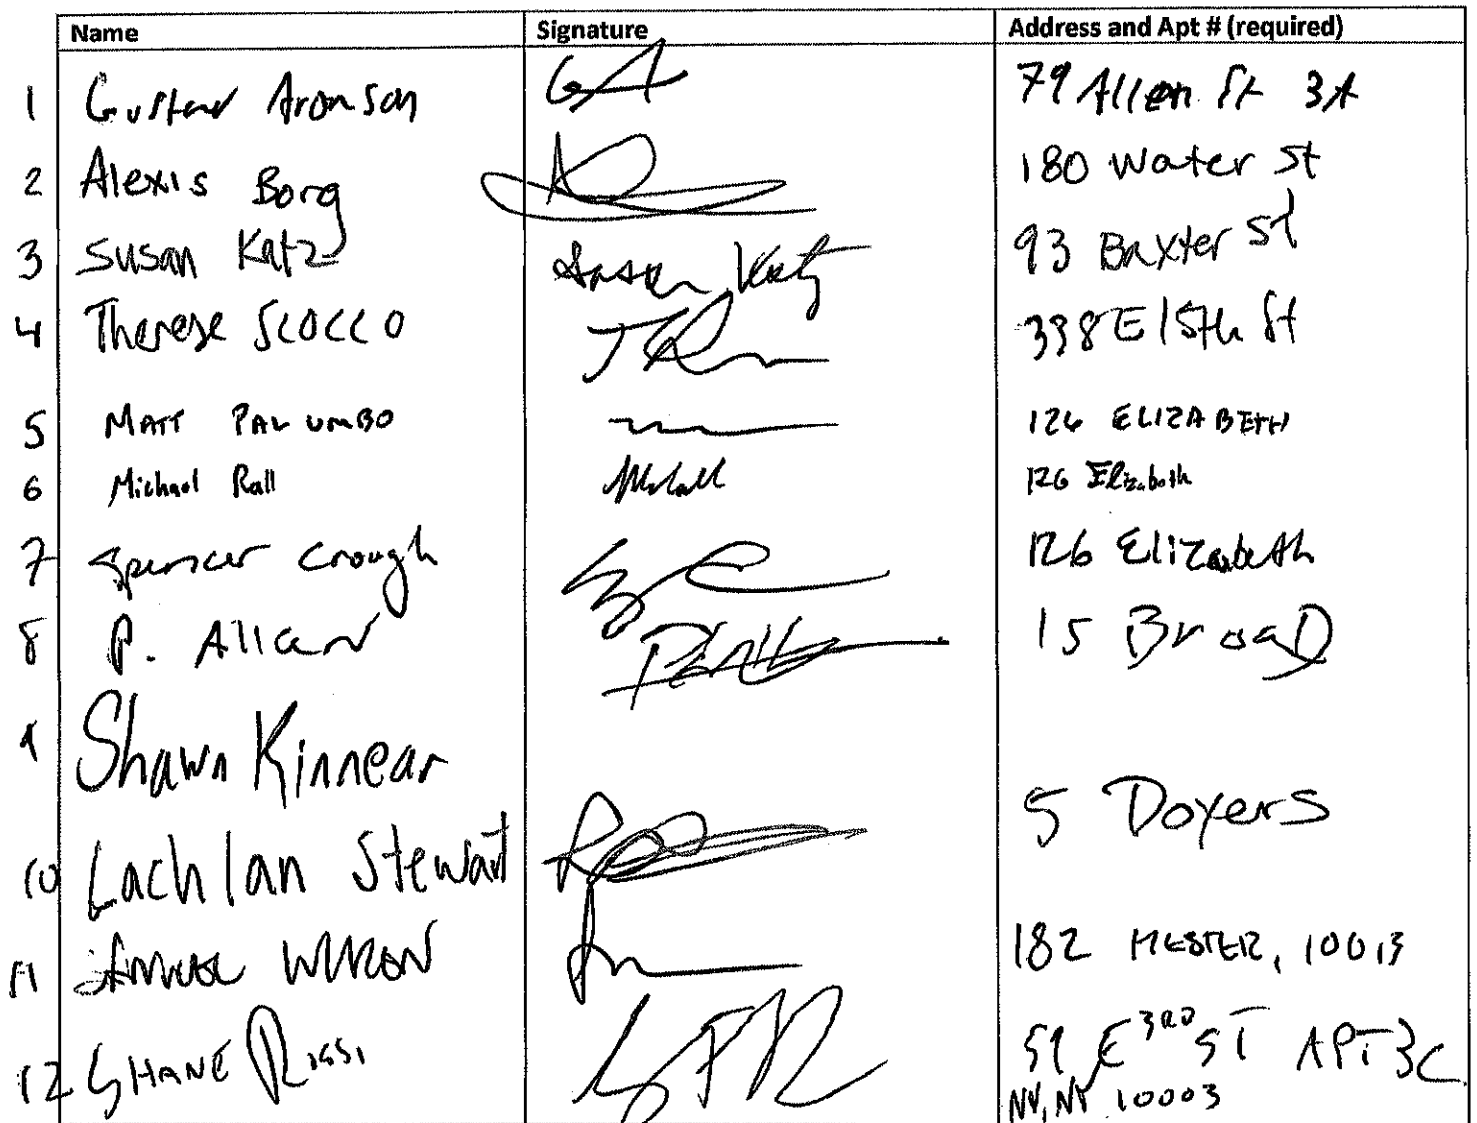 Name Signature Address and Apt # (required)
1 Gustav Aronson GA 79 Allen St 3A
2 Alexis Borg 180 Water St
3 Susan Katz Susan Katz 93 Baxter St
4 Therese Scocco 338 E 15th St
5 MATT PALUMBO 126 ELIZABETH
6 Michael Rall 126 Elizabeth
7 Spencer Crough 126 Elizabeth
8 P. Allan 15 Broad
9 Shawn Kinnear
5 Doyers
10 Lachlan Stewart
11 182 HESTER, 10013
12 SHANE 59 E 3RD ST APT 3C
NY, NY 10003